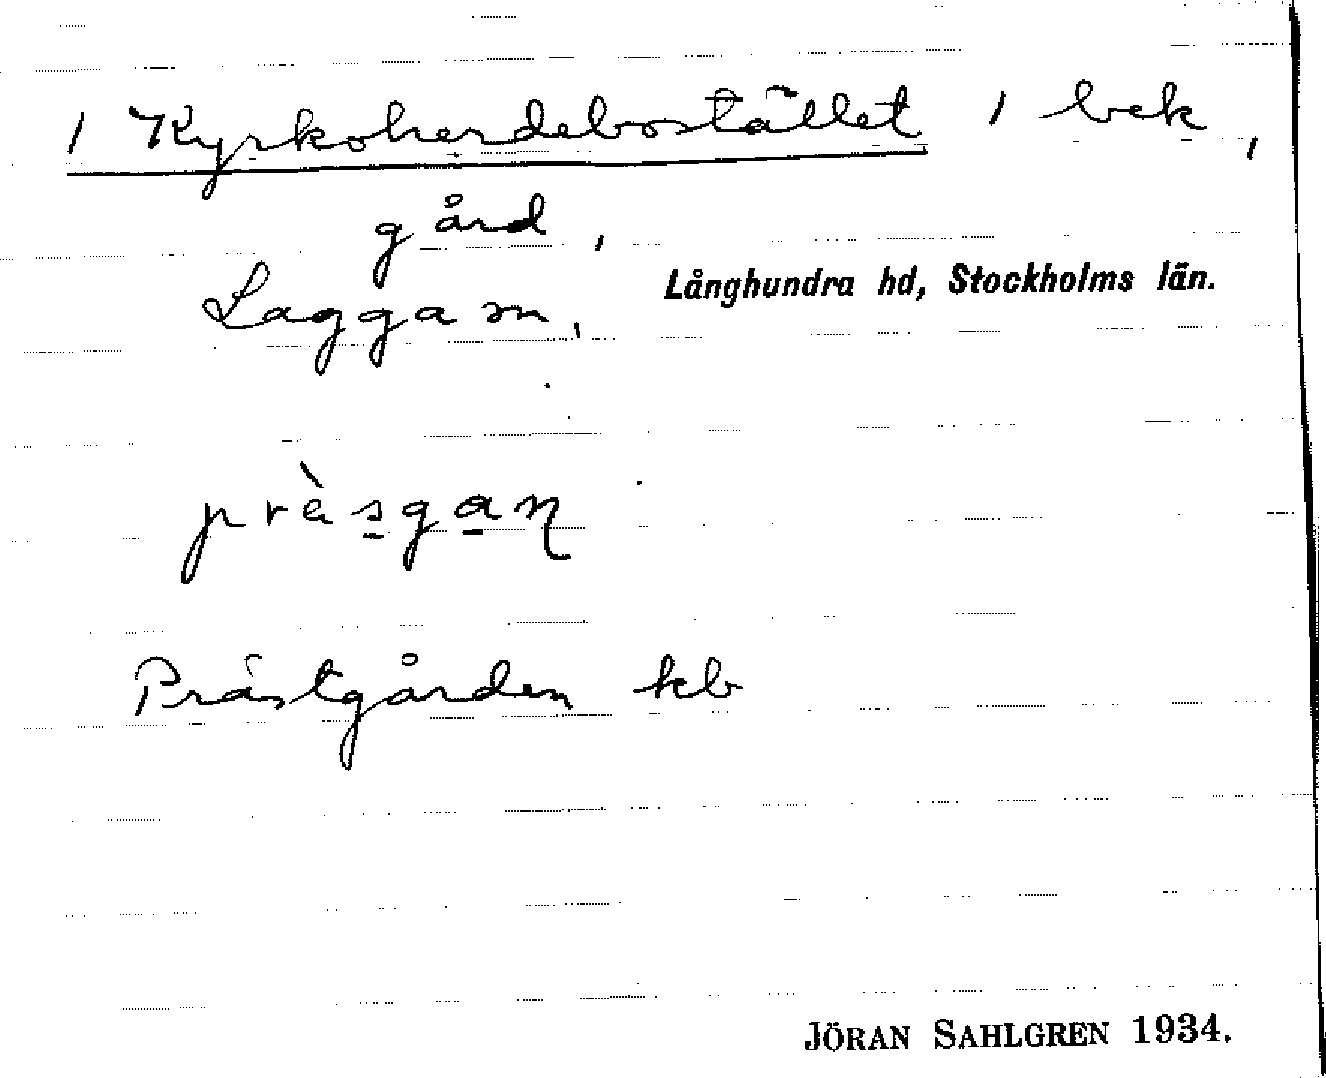 1 Kyrkoherdebostället 1 bek,
gård,
Lagga sn, Långhundra hd, Stockholms län.
prä̀sgaɳ
Prästgården kb
JÖRAN SAHLGREN 1934.